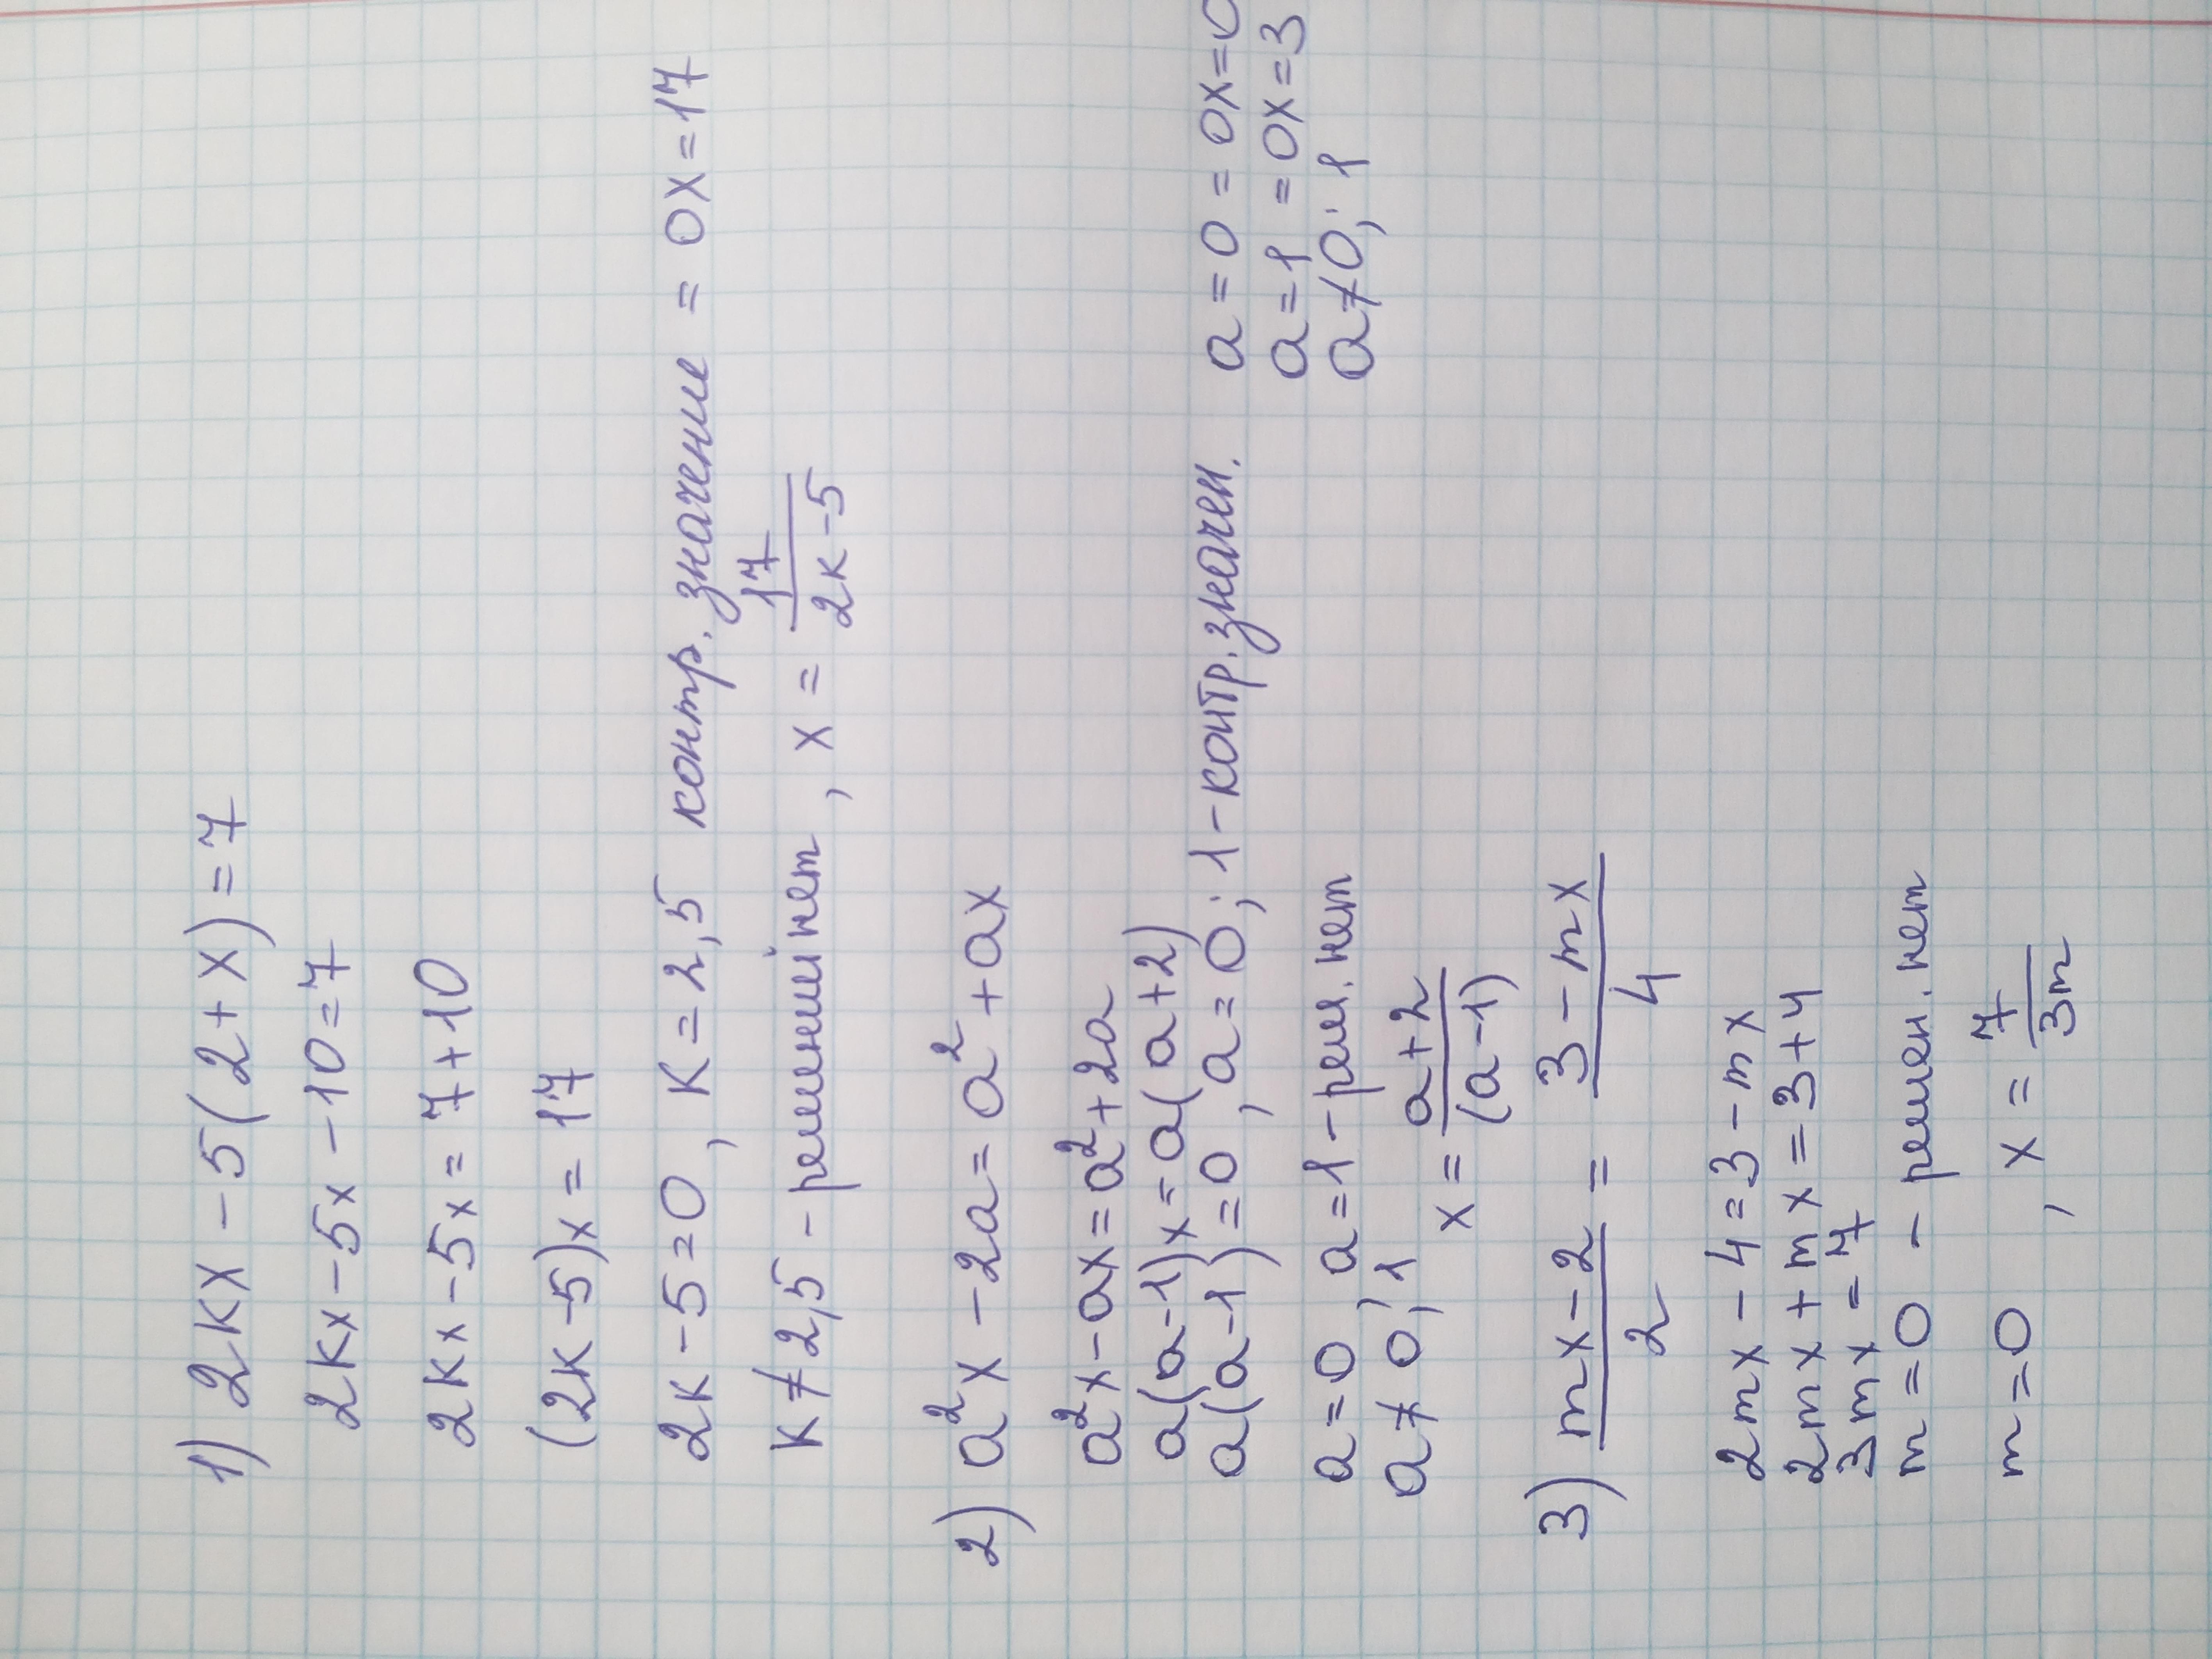 1) 2кх - 5(2 + х) = 7
2кх - 5х - 10 = 7
2кх - 5х = 7 + 10
(2к - 5)х = 17
2к - 5 = 0, к = 2,5 контр. значение = 0х = 17
к ≠ 2,5 - решений нет, х = 17/(2к - 5)
2) a²x - 2a = a² + ax
a²x - ax = a² + 2a
a(a - 1)x = a(a + 2)
a(a - 1) = 0, a = 0; 1 - контр. значен. a = 0 = 0x = 0
a = 1 = 0x = 3
a = 0 a = 1 - реш. нет a ≠ 0; 1
a ≠ 0; 1
x = (a + 2)/(a - 1)
3) (mx - 2)/2 = (3 - mx)/4
2mx - 4 = 3 - mx
2mx + mx = 3 + 4
3mx = 7
m = 0 - решен. нет
m = 0, x = 7/3m